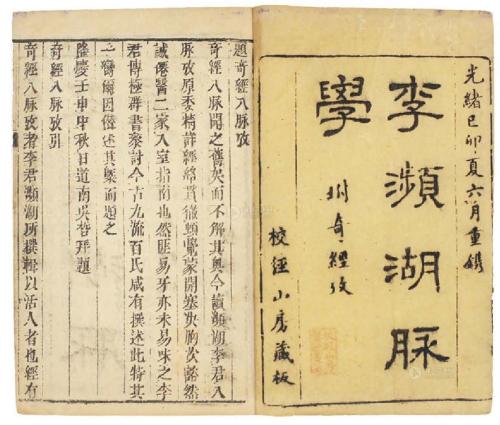 光緒己卯夏六月重鐫
李瀕湖脉
學
坿奇經攷
校經山房藏板
題奇經八脉攷
奇經八脉聞之舊矣而不解其奥今讀瀕湖李君八
脉攷原委精詳經絡貫徹頓覺蒙開塞決胸次豁然
誠僊醫二家入室指南也然匪易牙亦未易味之李
君博極群書參討今古九流百氏咸有撰述此特其
一臠爾因僃述其槩而題之
隆慶壬申中秋日道南吳哲拜題
奇經八脉攷引
奇經八脉攷者李君瀕湖所撰輯以活人者也經有